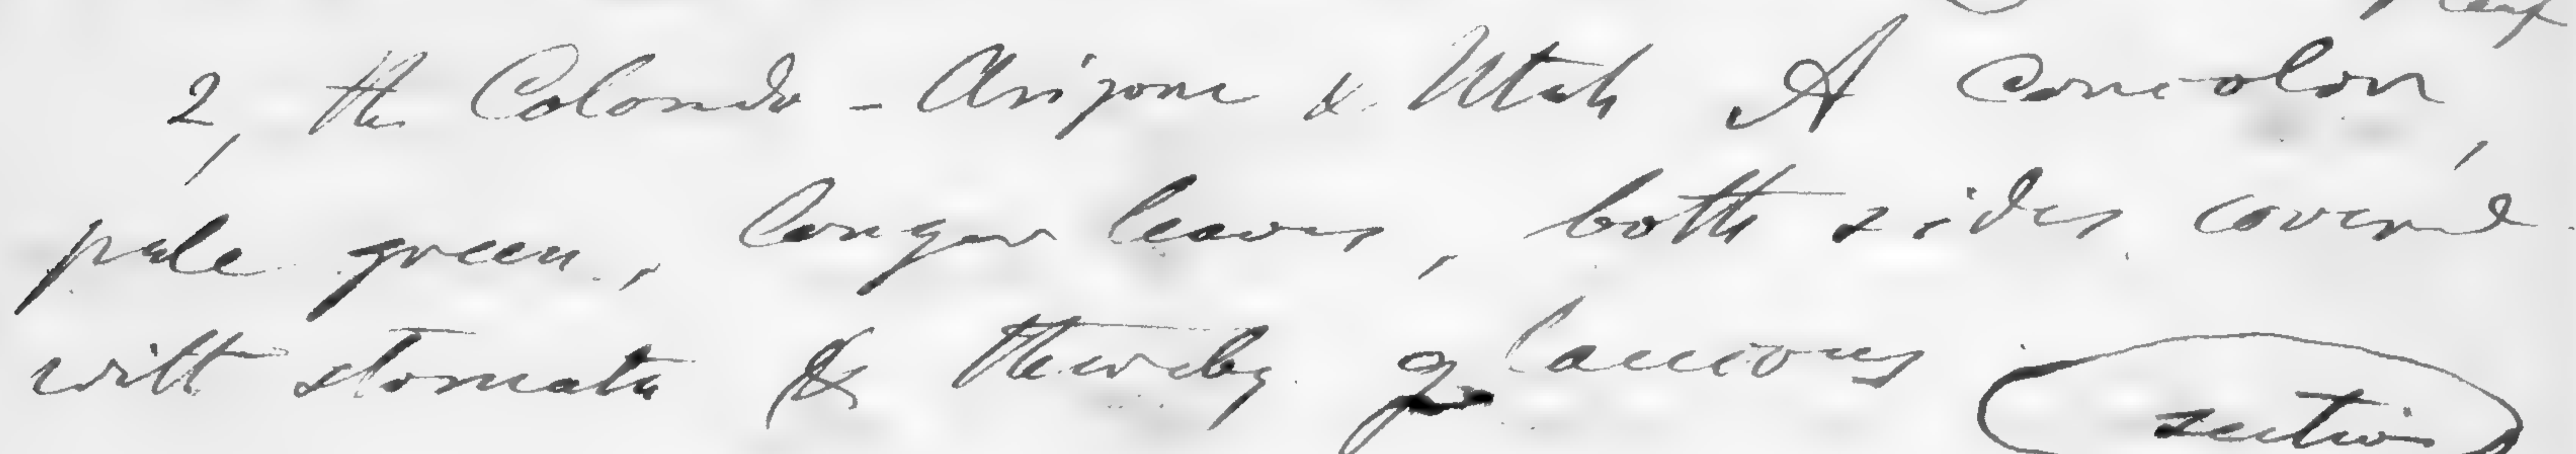 2, the Colorado - Arizona & Utah A concolor,
pale green, longer leaves, both sides cover'd
with stomata & thereby glaucous section